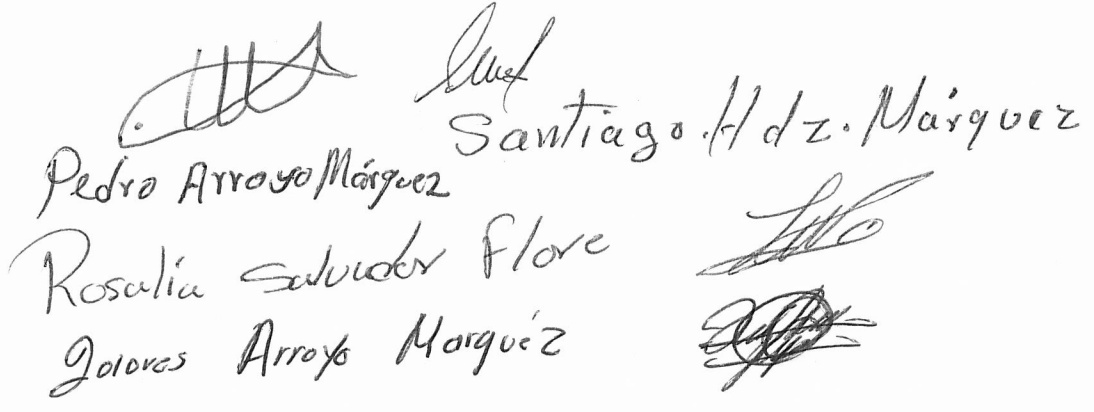 Santiago. Hdz. Márquez
Pedro Arroyo Márquez
Rosalía Salvador Flore
Dolores Arroyo Marquéz